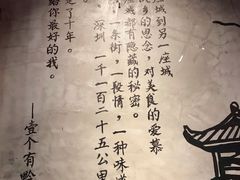 座城到另一座城
的思念，对美食的爱慕
座城都有隐藏的秘密。
一条街，一段情，一种味道
深圳 一千一百二十五公里
走了十年。
给你最好的我。
——壹个有黔